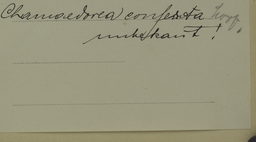 Chamaedorea conferta Hoog,
unbekannt!